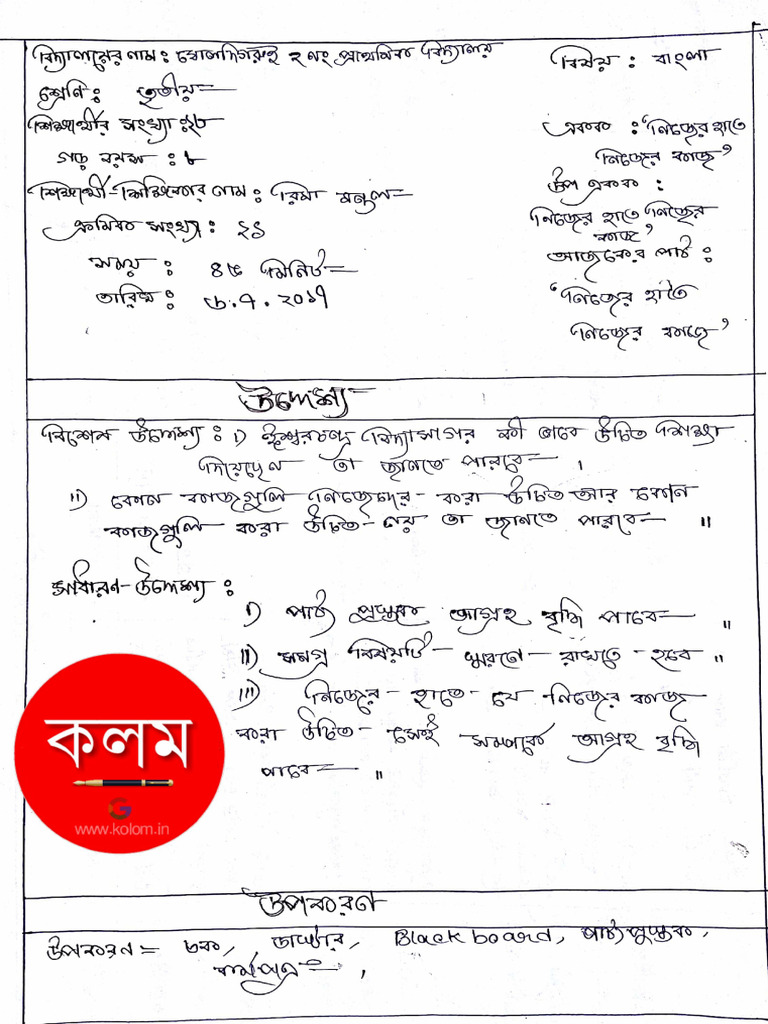 বিদ্যালয়ের নাম : গোলদিগরুই ২ নং প্রাথমিক বিদ্যালয়
শ্রেণি : তৃতীয়
শিক্ষার্থীর সংখ্যা : ২৮
গড় বয়স : ৮
শিক্ষার্থী-শিক্ষিকার নাম : রিমা মন্ডল
ক্রমিক সংখ্যা : ২১
সময় : ৪৫ মিনিট
তারিখ : ৬.৭.২০১৭
বিষয় : বাংলা
একক : 'নিজের হাতে
নিজের কাজ'
উপ একক :
'নিজের হাতে নিজের
কাজ'
আজকের পাঠ :
'নিজের হাতে
নিজের কাজ'
উদ্দেশ্য
বিশেষ উদ্দেশ্য : i) ঈশ্বরচন্দ্র বিদ্যাসাগর কী ভাবে উচিত শিক্ষা
দিয়েছেন তা জানতে পারবে ।
ii) কোন কাজগুলি নিজেদের করা উচিত আর কোন
কাজগুলি করা উচিত নয় তা জানতে পারবে ॥
সাধারণ উদ্দেশ্য :
i) পাঠ্য পুস্তকে আগ্রহ বৃদ্ধি পাবে ॥
ii) সমগ্র বিষয়টি স্মরণে রাখতে হবে ॥
iii) নিজের হাতে যে নিজের কাজ
করা উচিত সেই সম্পর্কে আগ্রহ বৃদ্ধি
পাবে ॥
কলম
www.kolom.in
উপকরণ
উপকরণ = চক, ডাস্টার, Black board, পাঠ্যপুস্তক,
কর্মপত্র ,